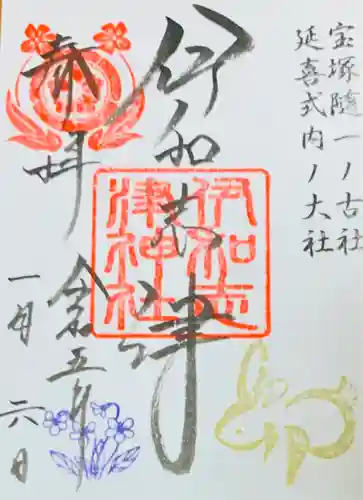 宝塚随一ノ古社
延喜式内ノ大社
伊和志津
伊和志
津神社
奉拝
令和五年
一月六日
卯